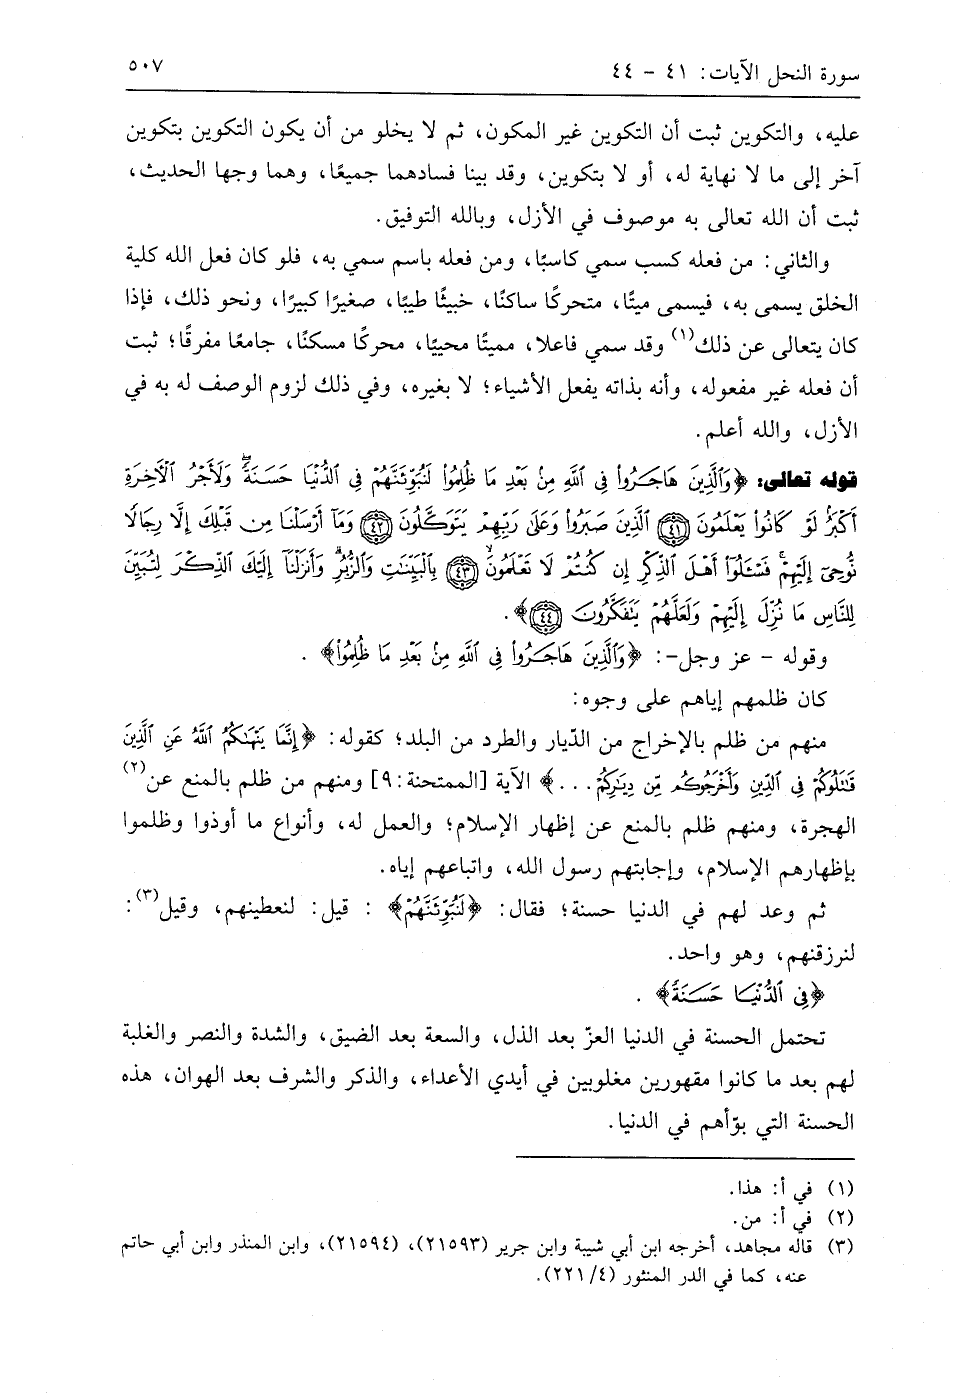 سورة النحل الآيات: ٤١ - ٤٤ ٥٠٧
عليه، والتكوين ثبت أن التكوين غير المكون، ثم لا يخلو من أن يكون التكوين بتكوين
آخر إلى ما لا نهاية له، أو لا بتكوين، وقد بينا فسادهما جميعًا، وهما وجها الحديث،
ثبت أن الله تعالى به موصوف في الأزل، وبالله التوفيق.
والثاني: من فعله كسب سمي كاسبًا، ومن فعله باسم سمي به، فلو كان فعل الله كلية
الخلق يسمى به، فيسمى ميتًا، متحركًا ساكنًا، خبيثًا طيبًا، صغيرًا كبيرًا، ونحو ذلك، فإذا
كان يتعالى عن ذلك(١) وقد سمي فاعلا، مميتًا محييًا، محركًا مسكنًا، جامعًا مفرقًا؛ ثبت
أن فعله غير مفعوله، وأنه بذاته يفعل الأشياء؛ لا بغيره، وفي ذلك لزوم الوصف له به في
الأزل، والله أعلم.
قوله تعالى: ﴿وَٱلَّذِينَ هَاجَرُوا۟ فِى ٱللَّهِ مِنۢ بَعْدِ مَا ظُلِمُوا۟ لَنُبَوِّئَنَّهُمْ فِى ٱلدُّنْيَا حَسَنَةً ۖ وَلَأَجْرُ ٱلْـَٔاخِرَةِ
أَكْبَرُ ۚ لَوْ كَانُوا۟ يَعْلَمُونَ ﴿٤١﴾ ٱلَّذِينَ صَبَرُوا۟ وَعَلَىٰ رَبِّهِمْ يَتَوَكَّلُونَ ﴿٤٢﴾ وَمَآ أَرْسَلْنَا مِن قَبْلِكَ إِلَّا رِجَالًا
نُّوحِىٓ إِلَيْهِمْ ۚ فَسْـَٔلُوٓا۟ أَهْلَ ٱلذِّكْرِ إِن كُنتُمْ لَا تَعْلَمُونَ ﴿٤٣﴾ بِٱلْبَيِّنَـٰتِ وَٱلزُّبُرِ ۗ وَأَنزَلْنَآ إِلَيْكَ ٱلذِّكْرَ لِتُبَيِّنَ
لِلنَّاسِ مَا نُزِّلَ إِلَيْهِمْ وَلَعَلَّهُمْ يَتَفَكَّرُونَ ﴿٤٤﴾﴾.
وقوله - عز وجل-: ﴿وَٱلَّذِينَ هَاجَرُوا۟ فِى ٱللَّهِ مِنۢ بَعْدِ مَا ظُلِمُوا۟﴾ .
كان ظلمهم إياهم على وجوه:
منهم من ظلم بالإخراج من الدّيار والطرد من البلد؛ كقوله: ﴿إِنَّمَا يَنْهَىٰكُمُ ٱللَّهُ عَنِ ٱلَّذِينَ
قَـٰتَلُوكُمْ فِى ٱلدِّينِ وَأَخْرَجُوكُم مِّن دِيَـٰرِكُمْ . . .﴾ الآية [الممتحنة: ٩] ومنهم من ظلم بالمنع عن(٢)
الهجرة، ومنهم ظلم بالمنع عن إظهار الإسلام؛ والعمل له، وأنواع ما أوذوا وظلموا
بإظهارهم الإسلام، وإجابتهم رسول الله، واتباعهم إياه.
ثم وعد لهم في الدنيا حسنة؛ فقال: ﴿لَنُبَوِّئَنَّهُمْ﴾ : قيل: لنعطينهم، وقيل(٣):
لنرزقنهم، وهو واحد.
﴿فِى ٱلدُّنْيَا حَسَنَةً﴾ .
تحتمل الحسنة في الدنيا العزّ بعد الذل، والسعة بعد الضيق، والشدة والنصر والغلبة
لهم بعد ما كانوا مقهورين مغلوبين في أيدي الأعداء، والذكر والشرف بعد الهوان، هذه
الحسنة التي بوّأهم في الدنيا.
(١) في أ: هذا.
(٢) في أ: من.
(٣) قاله مجاهد، أخرجه ابن أبي شيبة وابن جرير (٢١٥٩٣)، (٢١٥٩٤)، وابن المنذر وابن أبي حاتم
عنه، كما في الدر المنثور (٢٢١/٤).